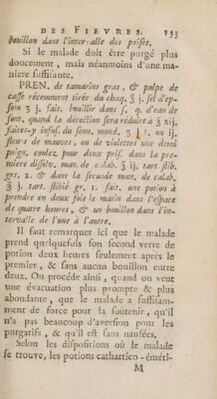 DES FIEVRES. 133
bouillon dans l'intervalle des prises.
Si le malade doit être purgé plus
doucement, mais néanmoins d'une ma-
niere suffisante.
PREN. de tamarins gras, & pulpe de
casse récemment tirée de chaq. ℥ j. sel d'ep-
som ℥ j. fait. bouillir dans j. q. d'eau de
font, quand la décoction sera réduite à ℥ xij.
faites-y infus. du senn. mond. ou ij.
fleurs de mauves, ou de violettes une demi
poign. coulez pour deux pris. dans la pre-
miere dissolv. man. de calab. ℥ ij. tart. stib.
grs. 2. & dans la seconde man. de calab.
℥ j. tart. stibié gr. 1. fait. une potion à
prendre en deux fois le matin dans l'espace
de quatre heures, & un bouillon dans l'in-
tervalle de l'une à l'autre.
Il faut remarquer ici que le malade
prend quelquefois son second verre de
potion deux heures seulement après le
premier, & sans aucun bouillon entre
deux. On procéde ainsi, quand on veut
une évacuation plus prompte & plus
abondante, que le malade a suffisam-
ment de force pour la soutenir, qu'il
n'a pas beaucoup d'aversion pour les
purgatifs, & qu'il est sans nausées.
Selon les dispositions où le malade
se trouve, les potions cathartico-éméti-
M